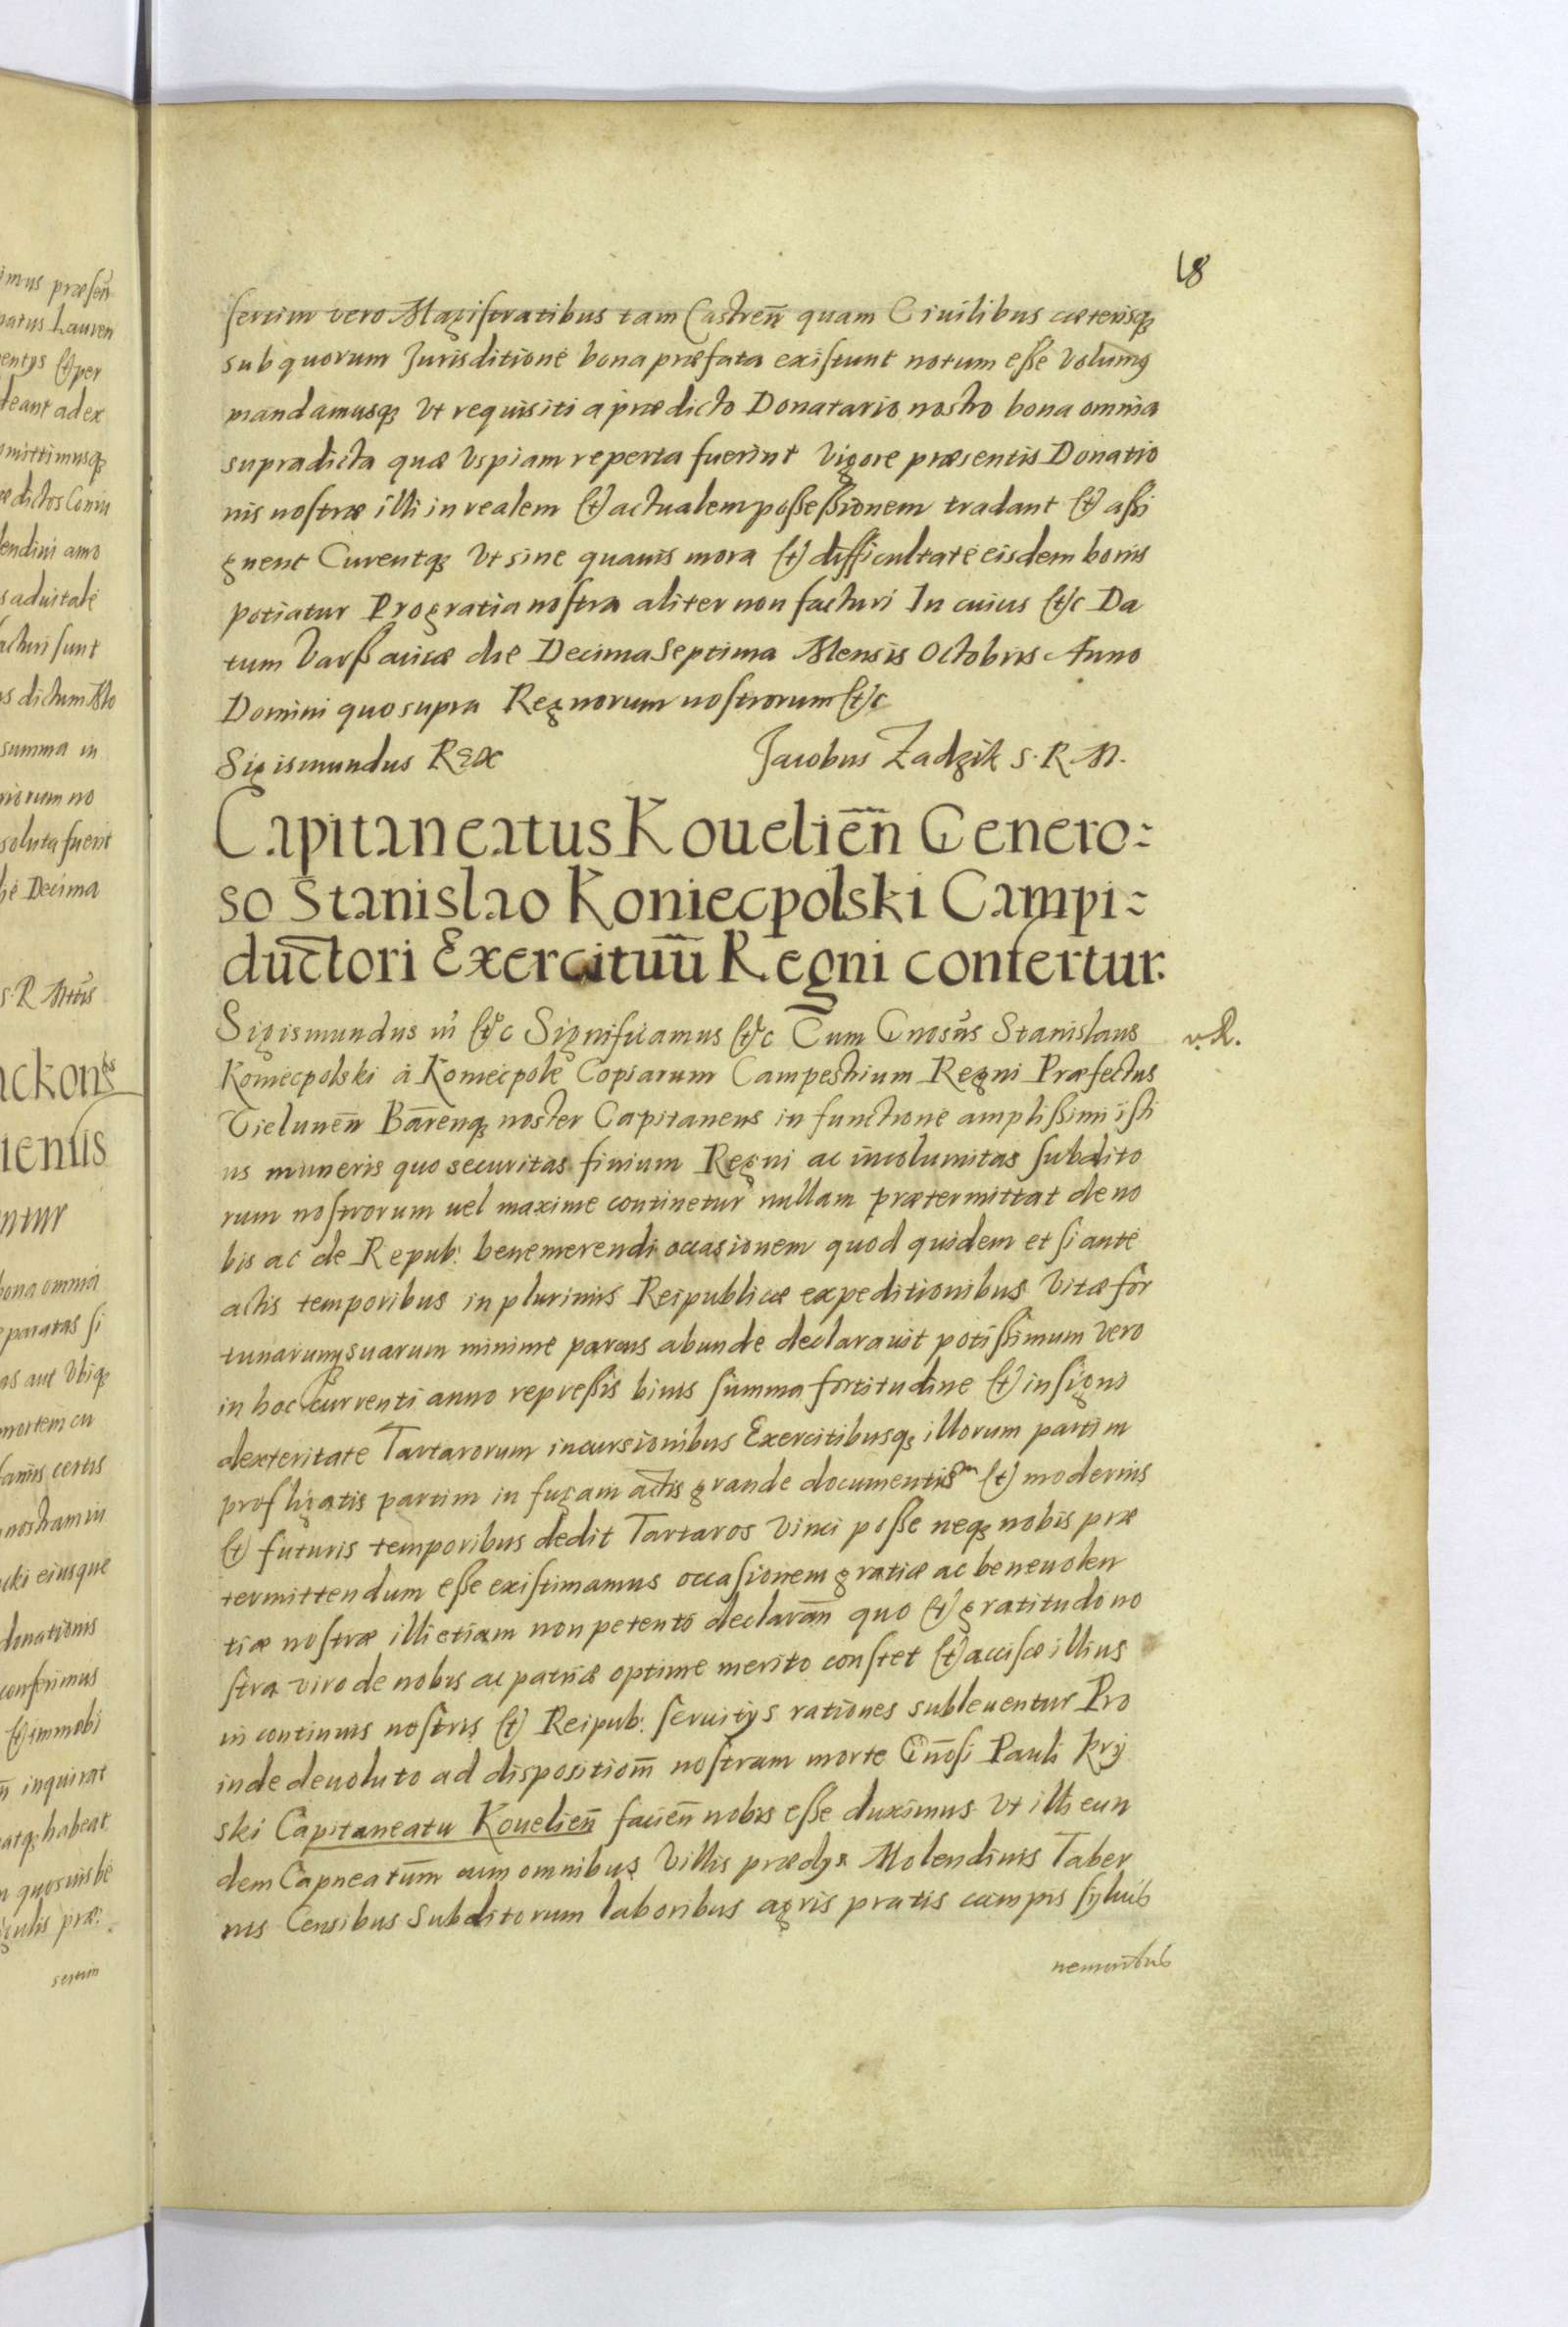 18
sertim vero Magistratibus tam Castren̄ quam Ciuilibus cæterisq;
sub quorum Jurisditione bona præfata existunt notum eße volumꝰ
mandamusq; Vt requisiti a prædicto Donatario nostro bona omnia
supradicta quæ Vspiam reperta fuerint Vigore præsentis Donatio
nis nostræ illi in realem et actualem poßeßionem tradant et aßi
gnent Curentq; Vt sine quauis mora et difficultate eisdem bonis
potiatur Pro gratia nostra aliter non facturi In cuius etc Da
tum Varßauiæ die Decima Septima Mensis Octobris Anno
Domini quo supra Regnorum nostrorum etc
Sigismundus Rex Jacobus Zadzik S. R. M.
Capitaneatus Kouelien̄ Genero:
so Stanislao Koniecpolski Campi:
ductori Exercituū Regni confertur.
Sigismundus III etc Significamus etc Cum Gnosus Stanislaus
Koniecpolski à Koniecpole Copiarum Campestrium Regni Præfectus
Vielunen̄ Barenq; noster Capitaneus in functione amplißimi isti
us muneris quo securitas finium Regni ac incolumitas subdito
rum nostrorum uel maxime continetur nullam prætermittat de no
bis ac de Repub: benemerendi occasionem quod quidem et si ante
actis temporibus in plurimis Reipublicæ expeditionibus Vitæ for
tunarumq; suarum minime parcus abunde declarauit potißimum vero
in hoc currenti anno repreßis binis summa fortitudine et insigni
dexteritate Tartarorum incursionibus Exercitibusq; illorum partim
profligatis partim in fugam actis grande documentum et modernis
et futuris temporibus dedit Tartaros vinci poße neq; nobis præ
termittendum eße existimamus occasionem gratiæ ac beneuolen
tiæ nostræ illi etiam non petenti declaran̄ quo et gratitudo no
stra viro de nobis ac patria optime merito constet et accisæ illius
in continuis nostris et Reipub: seruitys rationes subleuentur Pro
inde deuoluto ad dispositiom̄ nostram morte Gn̄osi Pauli Krÿ
ski Capitaneatu Kouelien̄ facien̄ nobis eße duximus Vt illi eun
dem Capneatum̄ cum omnibus Villis prædys Molendinis Taber
nis Censibus Subditorum laboribus agris pratis campis syluis
nemoribus
v. R.